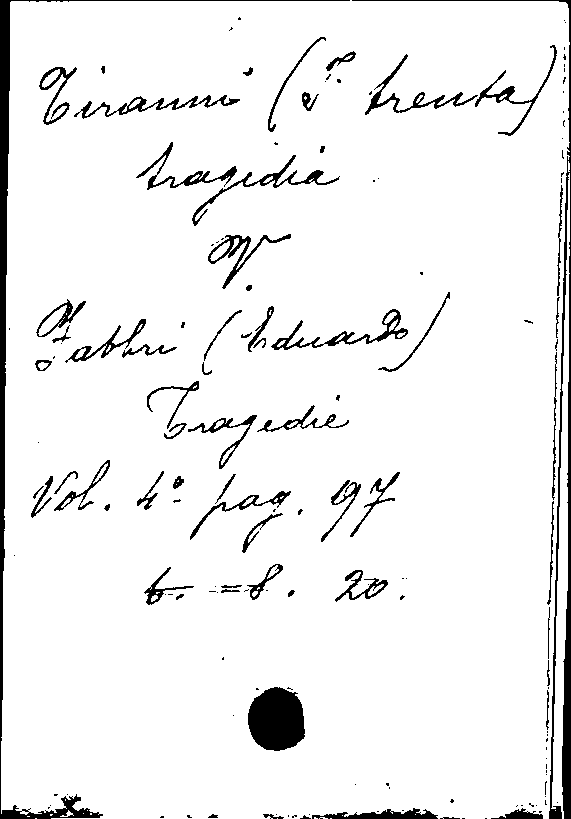 Tiranni (I trenta)
tragedia
V.
Fabbri (Eduardo)
Tragedie
Vol. 4º pag. 97
6. = 8. 20.